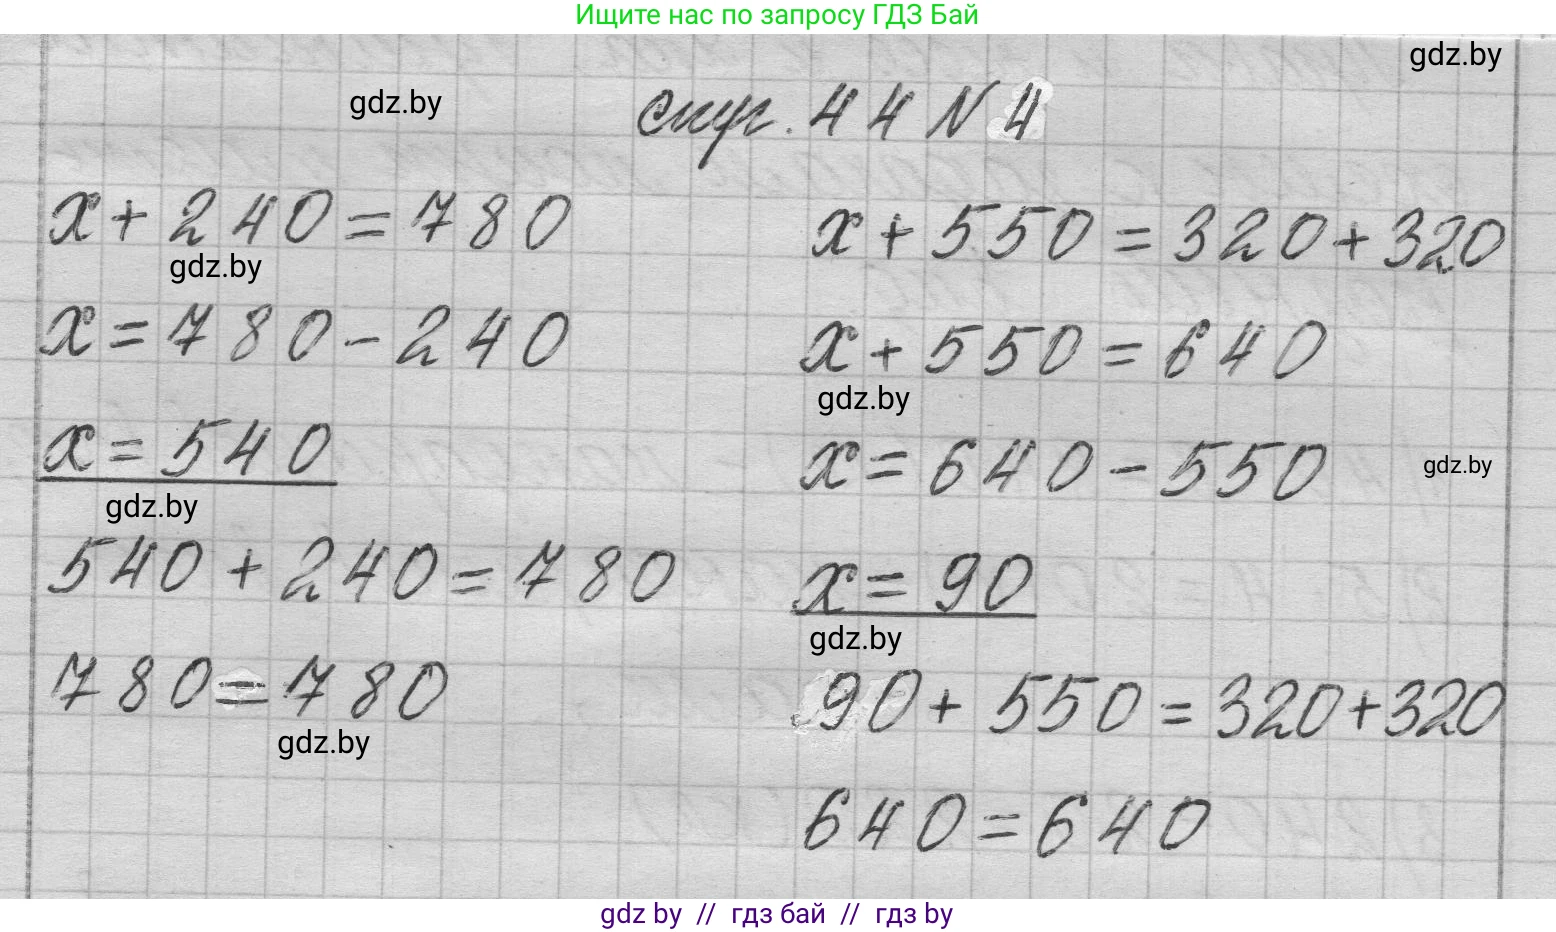 Ищите нас по запросу ГДЗ Бай
gdz.by
gdz.by
стр. 44 № 4
x + 240 = 780
gdz.by
x = 780 - 240
x = 540
gdz.by
540 + 240 = 780
780 = 780
gdz.by
x + 550 = 320 + 320
x + 550 = 640
gdz.by
x = 640 - 550
gdz.by
x = 90
gdz.by
90 + 550 = 320 + 320
640 = 640
gdz by // гдз бай // gdz by